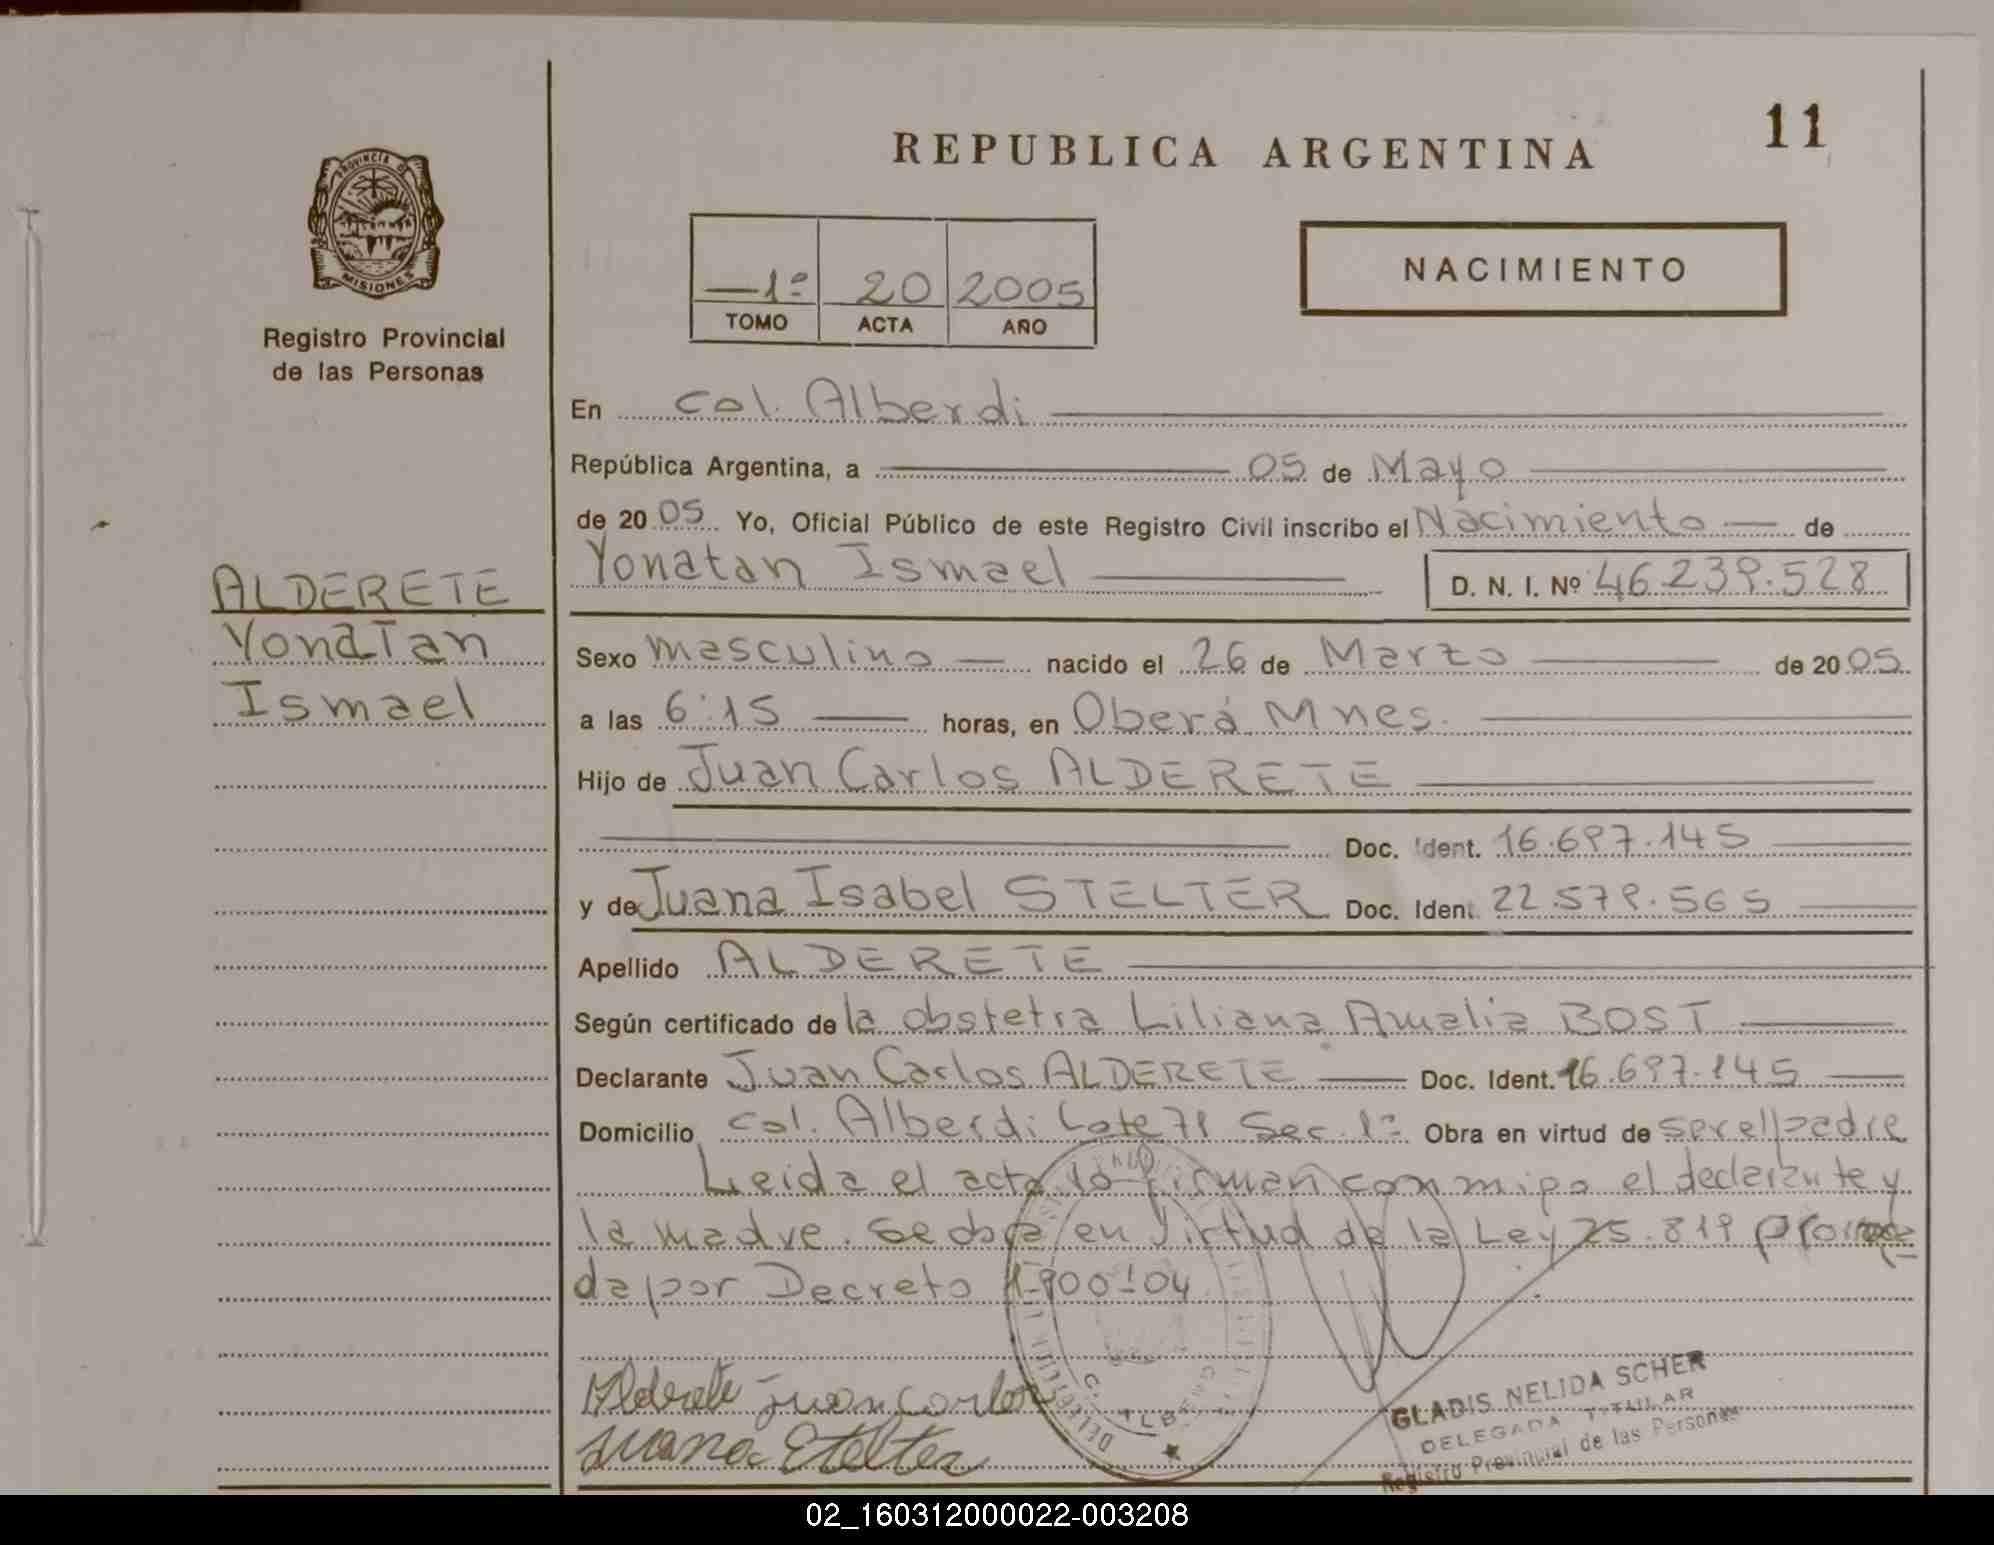 11
REPUBLICA ARGENTINA
PROVINCIA DE
MISIONES
Registro Provincial
de las Personas
NACIMIENTO
—1º 20 2005
TOMO ACTA AÑO
En Col. Alberdi
República Argentina, a 05 de Mayo
de 2005 Yo, Oficial Público de este Registro Civil inscribo el Nacimiento — de
Yonatan Ismael D. N. I. Nº 46.239.528
ALDERETE
Yonatan
Ismael
Sexo masculino — nacido el 26 de Marzo de 2005
a las 6:15 horas, en Oberá Mnes.
Hijo de Juan Carlos ALDERETE
Doc. Ident. 16.697.145
y de Juana Isabel STELTER Doc. Ident. 22.579.565
Apellido ALDERETE
Según certificado de la obstetra Liliana Amalia BOST
Declarante Juan Carlos ALDERETE Doc. Ident. 16.697.145
Domicilio Col. Alberdi Lote 71 Sec. 1ª Obra en virtud de ser el padre
Leida el acta la firman conmigo el declarante y
la madre. Se obra en virtud de la Ley 25.819
da por Decreto 1.900-04
Alderete juan carlos
juana Stelter
GLADIS NELIDA SCHER
DELEGADA TITULAR
Registro Provincial de las Personas
02_160312000022-003208